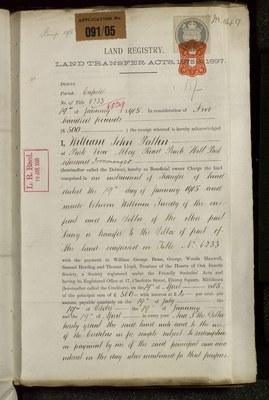 APPLICATION No.
091/05
LAND REGISTRY.
LAND TRANSFER ACTS, 1875 & 1897.
District
Parish Enfield
No. of Title 6733
19th January 1905. In consideration of Five
hundred pounds
(£ 500 ) the receipt whereof is hereby acknowledged
I, William John
of Park
(hereinafter called the Debtor), hereby as Beneficial owner Charge the land
comprised in an instrument of transfer of land
dated the 19th day of January 1905 and
made between William of the one
part and the Debtor of the other part
being a transfer to the Debtor of part of
the land comprised in Title No. 6733
with the payment to William George Bunn, George Woods Maxwell,
Samuel Harding and Thomas Lloyd, Trustees of the Hearts of Oak Benefit
Society, a Society registered under the Friendly Societies' Acts and
having its Registered Office at 17, Charlotte Street, Fitzroy Square, Middlesex
(hereinafter called the Creditors), on the 19th of April 1905,
of the principal sum of £ 500 with interest at £ per cent. per
annum, payable quarterly on the 19th of July the
19th of October the 19th of January
and the 19th of April in every year And I the Debtor
hereby grant the said land unto and to the use
of the Creditors in fee simple subject to redemption
on payment by me of the said principal sum and
interest on the day above mentioned for that purpose